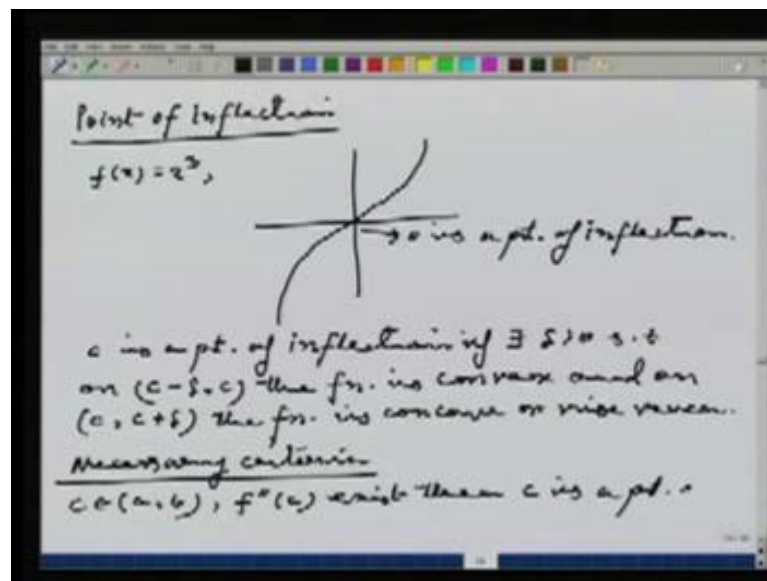 Point of Inflection
f(x) = x³,
→ 0 is a pt. of inflection.
c is a pt. of inflection if ∃ δ > 0 s.t
on (c-δ, c) the fn. is convex and on
(c, c+δ) the fn. is concave or vice versa.
Necessary criteria
c ∈ (a, b), f''(c) exist then c is a pt.